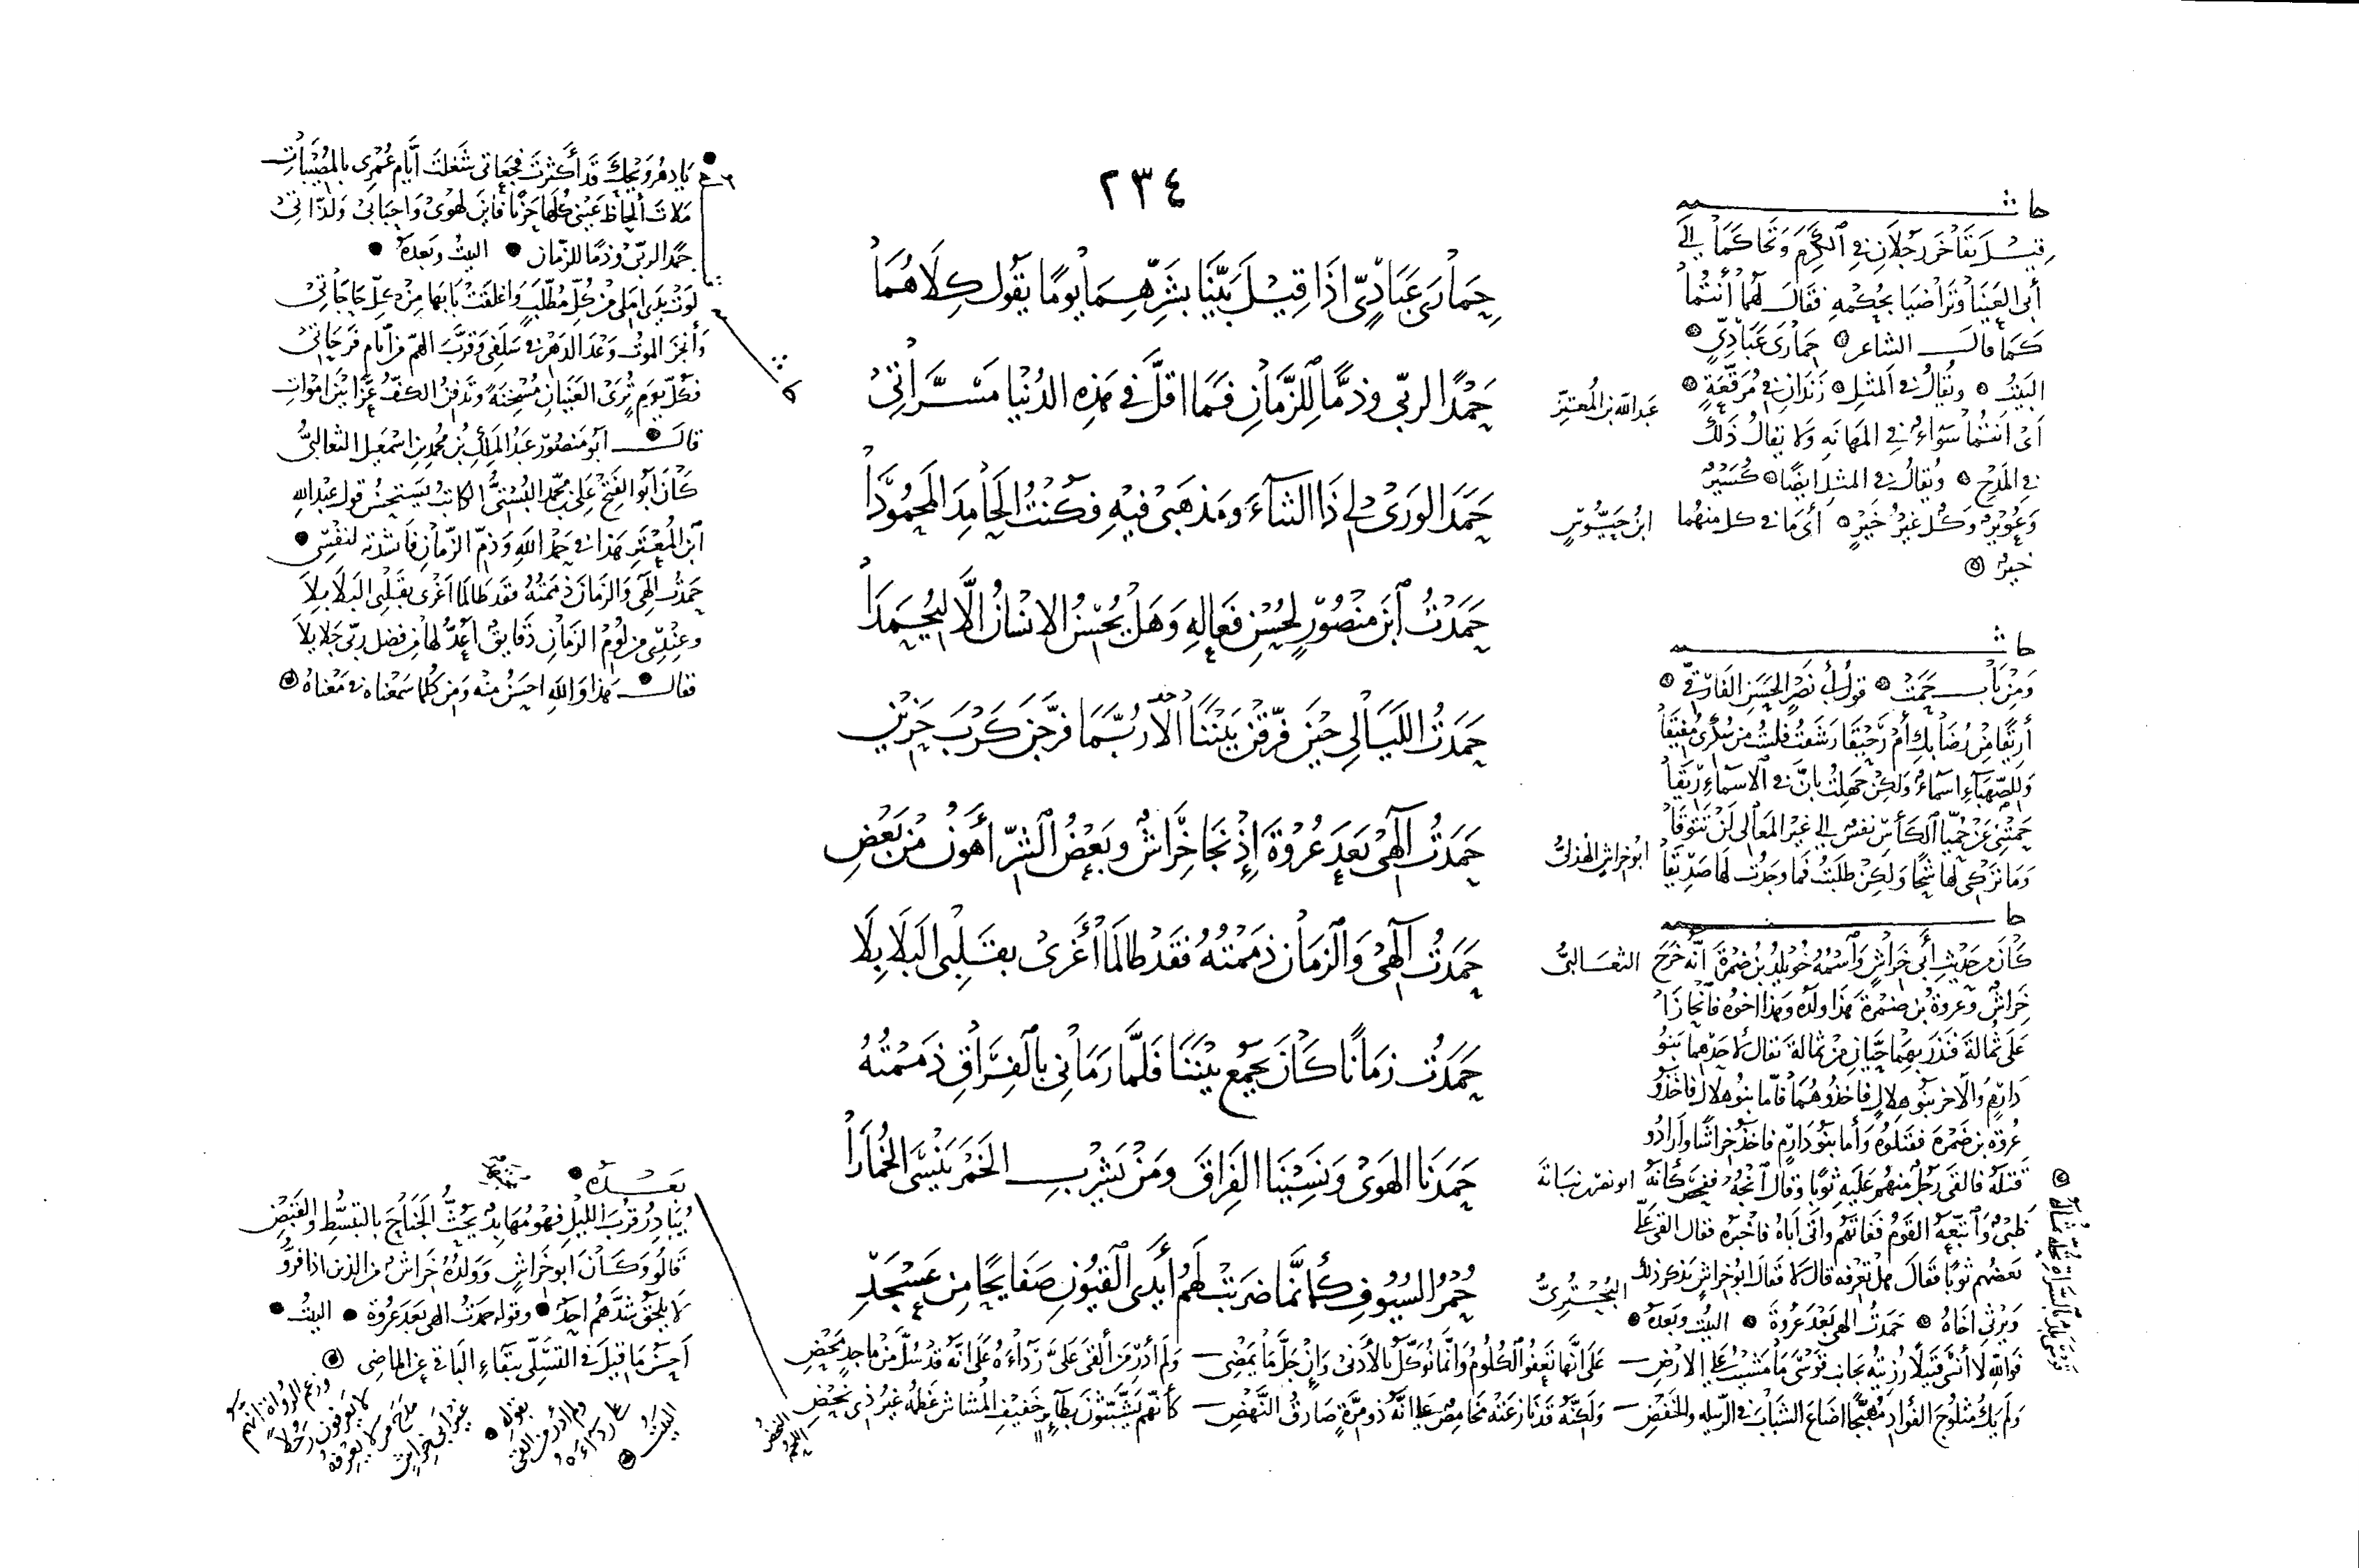 ٢٣٤
حِمَارَى عَبَادِيٍّ اذَا قِيْلَ بَيِّنَا بشَرِّهِمَا يَومًا يَقُول كِلَاهُمَا
حَمْدًا لربّي وذمًّا لِلزَّمَانِ فَمَا اقلَّ في هَذِهِ الدُنْيَا مَسَرَّاتِيْ
عَبدالله بن المُعتزِّ
حَمَدَ الوَرَىْ لِي ذَا الثناءَ وَمَذهَبِى فيْهِ فكُنْتُ الحَامِدَ المَحمُوْدَا
ابنُ حَيُّوسٍ
حَمَدْتُ ابنَ مَنصُوْرٍ لِحُسْنِ فَعَالِهِ وَهَلْ يُحْسِنُ الانسَانُ الَّا ليُحْمَدَا
حَمَدْتُ اللَيَالِي حيْنَ فَرَّقْنَ بَيْنَنَا الَا رُبَّمَا فرَّجنَ كَرْبَ حَزِيْنِ
حَمَدْتُ آلهِيْ بَعدَ عُرْوَةَ إِذْ نَجَا خِرَاشٌ وبَعْضُ الشرِّ أَهوَنُ مْن بَعْضِ
ابُو خِراشٍ الهذلىُّ
حَمَدْتُ آلهِيْ وَالزمَان ذمَمْتُهُ فقَدْ طالَمَا أَغرَىْ بقَلْبِى البَلَابِلَا
الثعَالبىُّ
حَمَدْتُ زمَانًا كَانَ يَجمَعُ بَيْنَنَا فَلَمَّا رَمَانِي بالْفِرَاقِ ذمَمْتُهُ
حَمَدنَا الهَوَىْ وَنَسِيْنَا الفِرَاقَ وَمَنْ يَشْربِ الخَمْرَ يَنْسَى الخُمَارَا
ابو نصر بن نباتة
حُمْرُ السُيُوفِ كأَنَّمَا ضرَبَتْ لَهُمْ أَيدَى القيُوْنِ صَفَايحًا مِن عَسْجَدِ
البُحْتُرِىُّ
حاش
قِيْلَ تَفَاخَرَ رَجُلَانِ فِي الكَرَمِ وَتحَاكَمَا إلَى
أبى العَيْنَا وَتَرَاضَيَا بحُكْمِهِ فقَالَ لَهُمَا أنتُمَا
كَمَا قالَ الشاعر حِمَارَى عَبَادِيٍّ
البَيتُ وَيُقالُ في المثلِ زندَانِ فِي مُرَقَّعَةٍ
اَىْ انتُمَا سَوَاءٌ فِي المَهَانَةِ وَلَا يقَالُ ذَلِكَ
فِي المَدْحِ وَيُقَالُ في المثلِ ايضًا كُسَيْرٌ
وَعُوَيْرٌ وَكُلٌ غَيْرُ خَيْرٍ أى مَا في كل منهُما
خيرٌ
حاش
وَمِنْ بَابِ حَمَتْ قولُ أبى نصْرٍ الحَسَنِ الفارقىِّ
أرِيقًا مِنْ رُضَابِكِ أَمْ رَحِيْقَا رَشفتُ فلَسْتُ مِن سُكْرى مُفِيْقَا
وَلِلصَّهبَاءِ اسمَاءٌ وَلكِنْ جَهِلتُ بانَّ في الاسْمَاءِ رِيْقَا
حَمتْنِى عَنْ حُمَيَّا الكَأسِ نفسٌ إلى غيرِ المَعَالي لَنْ تتُوْقَا
وَمَا تركِي لهَا شحًّا وَلَكِنْ طلَبْتُ فمَا وَجَدْتُ لهَا صَدِيْقَا
حا
كَانَ مِن حَدِيْثِ أَبي خِرَاشٍ وَاسْمُهُ خُوَيلدُ بن ضمْرَةَ انَّهُ خَرَجَ
خِرَاشٌ وعروةُ بن ضمْرة هَذَا ولَدُهُ وَهَذا اخوهُ فأغَارَا
عَلَى ثُمالةَ فنَذرَ بهِمَا حَيَّانِ مِنْ ثمالةَ يقال لأحدِهِما بَنُو
دَارِمٍ والاخر بنُو هِلالٍ فاخَذُوهُمَا فَأمَا بنُو هلالٍ فاخَذُوْ
عُروَة بن ضَمْرة فقَتلوُهُ وَأما بنُو دَارِمٍ فاخَذُوْ خِراشًا وأَرادُو
قتلَهُ فالقى رَجُلٌ منهُم عَلَيهِ ثوبًا وَقالَ انجُهُ ففحَصَ كأنّهُ
ظَبْىٌ وَأَتبَعَهُ القَوْمُ ففاتَهُم وَأتى أبَاهُ فاخبَرهُ فقالَ القى عَلىَّ
بَعضُهُم ثوبًا فقَالَ هل تعْرفه قالَ لَا فقالَ ابُو خِراشٍ يذكر ذلِك
وَيرثى اخَاهُ حَمَدتُ الهِى بَعْدَ عُروَةَ البَيْتُ وَبَعدَهُ
فوَاللهِ لَا أنسَى قَتيلًا رُزِيْتُهُ بجَانبِ قَوْسَىْ مَا مَشيْتُ عَلَى الارْضِ
عَلَى انَّهَا تَعفُو الكُلُومُ وَانَّمَا نُوكَّلُ بالأَدْنَى وَإنْ جَلَّ مَا يَمْضِي
وَلَم أدْرِ مَن ألقَى عَليَّ رِدَاءَهُ عَلَى انّهُ قَدْ سُلَّ مَنْ مَاجدٍ مَحْضِ
وَلَم يَكُ مَثلُوجَ الفؤَادِ مُهَبَّجًا اضَاعَ الشبَابَ في الرَّبِيلَةِ والخَفْضِ
وَلَكِنّهُ قَدْ نَازعَتْهُ مَخَامِصٌ عَلَى انَّهُ ذو مِرَّةٍ صَادِقُ النَّهْضِ
كأَنَّهُم يَشَّبَّثونَ بطَآيرٍ خَفيْفِ المُشَاشِ عَظمُهُ غيرُ ذى نَحْضِ
النحضُ
اللحْمُ
يَا دهرُ وَيحَكَ قَد أَكثرْتَ فَجعَاتي شَغَلتَ أيَّامَ عُمْرِى بالمُصِيْبَاتِ
مَلأتَ ألحَاظَ عَيْنى كُلّهَا حَزَنًا فَاينَ لهوِىْ وَاحبَابىْ وَلَذَّاتِيْ
حَمْدًا لربّي وَذمًّا للزّمَانِ البيتُ وبَعدَهُ
وَأنجَزَ الموتُ وَعْدَ الدَهْرِ في سَلَفى وَقرَّبَ الهَمّ مِن أيّامِ
قالَ أبُو مَنصُوْر عَبْدُ المَلِكِ بنُ مُحمدِ بن اسْمعيلَ الثعَالبىُّ
كَانَ أبُو الفَتحِ عَلِىُّ بن مُحمّدٍ البُسْتىُّ الكاتبُ يَستَحسِنُ قول عبْدِ اللهِ
ابن المُعْتزِّ هَذا في حَمْدِ اللهِ وَذمّ الزّمَانِ فأنشدتهُ لنَفْسِى
حَمَدتُ إلهِى وَالزمَانَ ذمَمْتُهُ فقَد طَالَمَا اغرَى بقَلْبِى البَلَابِلاَ
وعِنْدِى مِن لُؤمِ الزمَانِ دَقايقٌ أعُدُّ لهَا مِن فضل ربّى جَلايلاَ
فقالَ هَذا وَاللهِ احسَنُ مِنْهُ وَمِن كُلمَا سَمعْناهُ في مَعْنَاهُ
بَعْدَهُ
يُبَادِرُ قُربَ الليلِ فهْوَ مُهَابِذٌ يَحُثُّ الجَنَاحَ بالتبَسُّطِ والقَبْضِ
قَالُو وَكَانَ أبُو خِرَاشٍ وَوَلدُهُ خِرَاشٌ مِن الذين اذا فرُّو
لَا يلحَقُ شَدَّهُم احَدٌ وقوله حمدتُ الهى بَعدَ عُروَة البيتُ
أَحسَنُ مَا قِيلَ في التسَلّى ببَقاءِ البَاقي عَنِ الماضِى
وزعم الرواة انهُم
لا يَعرفون رَجُلاً
مدَح مَن لا يَعرِفهُ
غير أبى خِراشٍ
بقولِهِ
ولم أدرِ من القى
علىَّ ردَاءَهُ
البيتُ